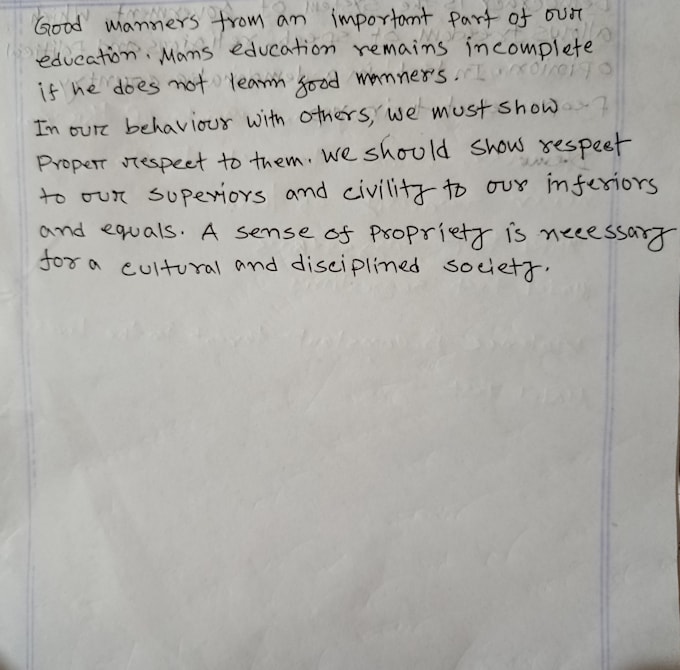 Good manners from an important part of our
education. Mans education remains incomplete
if he does not learn good manners.
In our behaviour with others, we must show
Proper respect to them. We should show respect
to our superiors and civility to our inferiors
and equals. A sense of propriety is necessary
for a cultural and disciplined society.